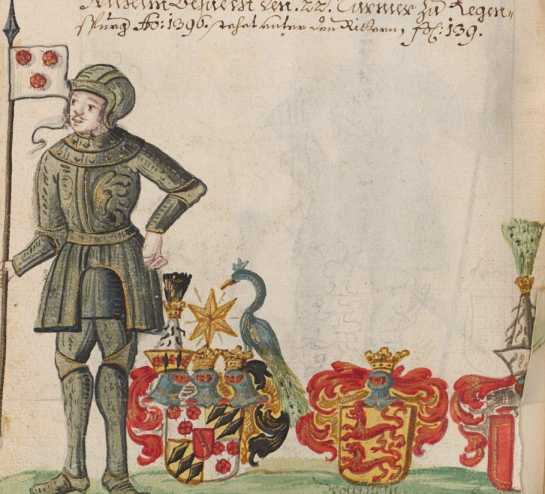 Anselm besucht den .22. Turnier zu Regen=
spurg Aō: 1396. stehet unter den Rittern, fol: 139.